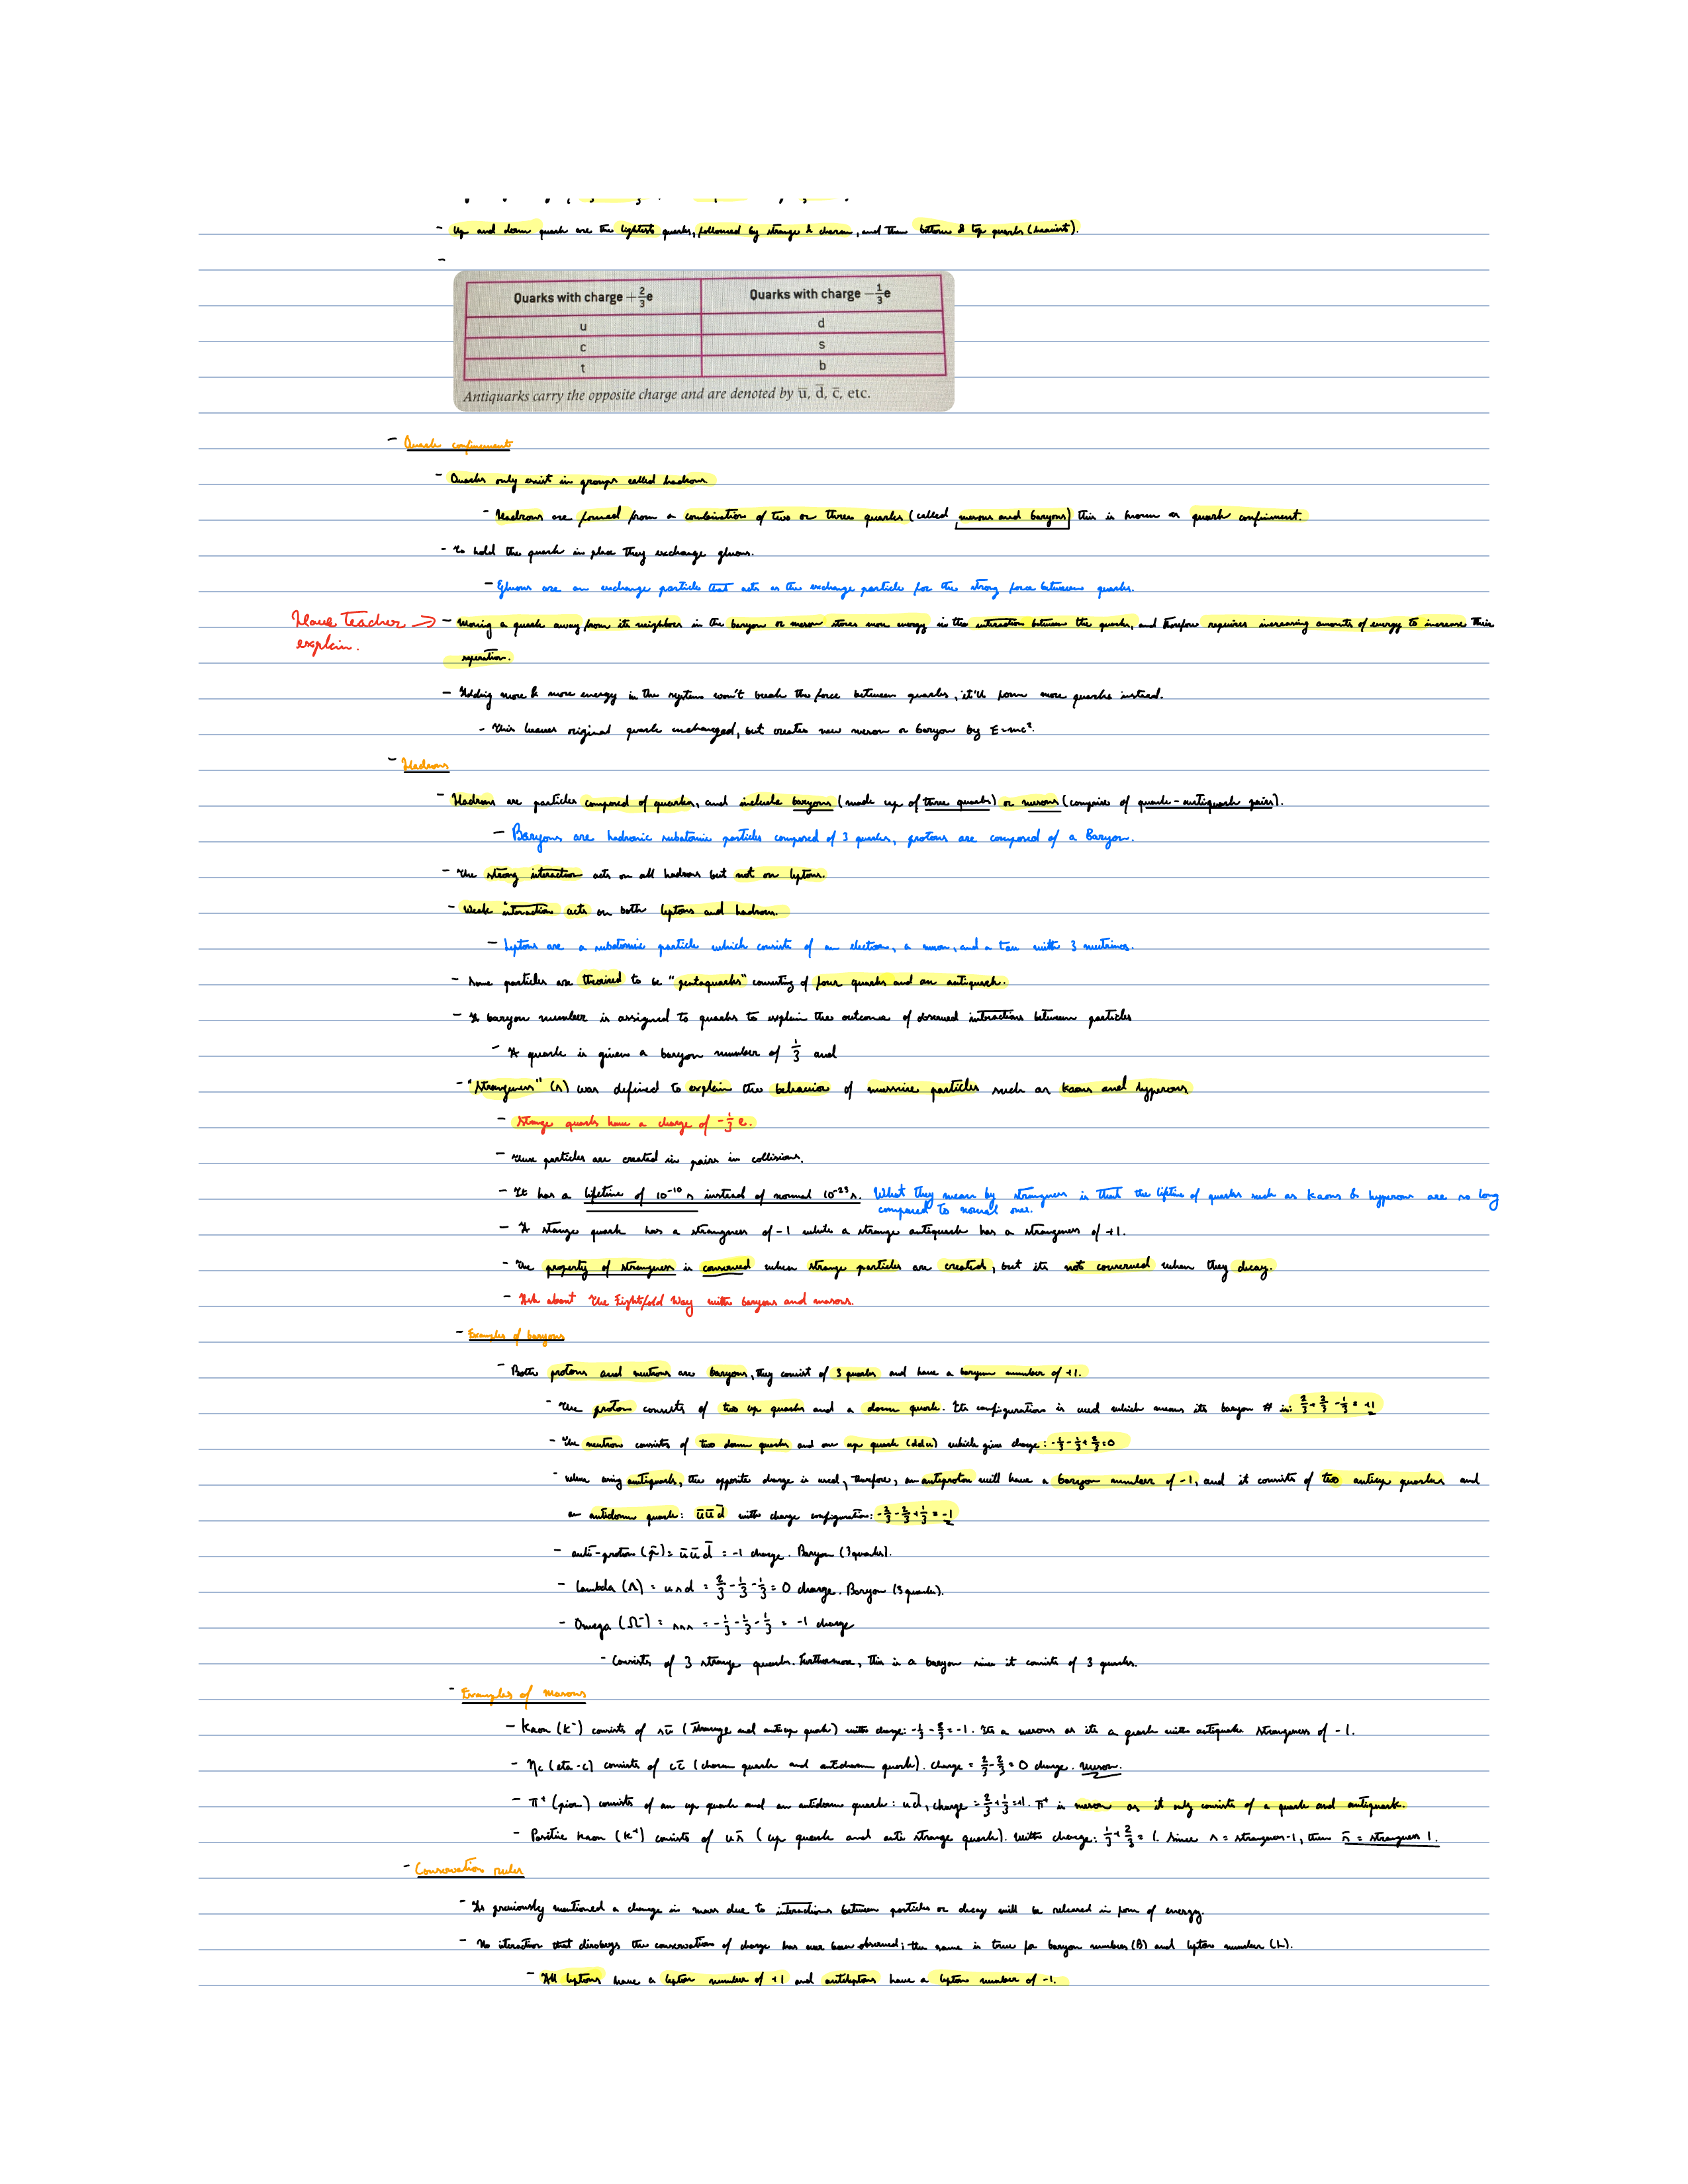 - Up and down quark are the lightest quarks, followed by strange & charm, and then bottom & top quarks (heaviest).
-
Quarks with charge +2/3e Quarks with charge -1/3e
u d
c s
t b
Antiquarks carry the opposite charge and are denoted by u̅, d̅, c̅, etc.
- Quark confinement
- Quarks only exist in groups called hadrons
- Hadrons are formed from a combination of two or three quarks (called mesons and baryons) this is known as quark confinment.
- To hold the quark in place they exchange gluons.
- Gluons are an exchange particle that acts as the exchange particle for the strong force between quarks.
Have teacher → - Moving a quark away from its neighbors in the baryon or meson stores more energy in the interaction between the quarks, and therefore requires increasing amounts of energy to increase their
explain.
separation.
- Adding more & more energy in the system won't break the force between quarks, it'll form more quarks instead.
- This leaves original quark unchanged, but creates new meson or baryon by E=mc².
- Hadrons
- Hadrons are particles composed of quarks, and include baryons (made up of three quarks) or mesons (comprise of quark-antiquark pairs).
- Baryons are hadronic subatomic particles composed of 3 quarks, protons are composed of a Baryon.
- The strong interaction acts on all hadrons but not on leptons.
- Weak interaction acts on both leptons and hadrons.
- Leptons are a subatomic particle which consists of an electron, a muon, and a tau with 3 neutrinos.
- Some particles are theorized to be "pentaquarks" consisting of four quarks and an antiquark.
- A baryon number is assigned to quarks to explain the outcome of observed interactions between particles
- A quark is given a baryon number of 1/3 and
- "Strangeness" (s) was defined to explain the behavior of massive particles such as kaons and hyperons
- Strange quarks have a charge of -1/3 e.
- These particles are created in pairs in collisions.
- It has a lifetime of 10⁻¹⁰ s instead of normal 10⁻²³ s. What they mean by strangeness is that the lifetime of quarks such as Kaons & hyperons are so long
compared to normal ones.
- A stange quark has a strangeness of -1 while a strange antiquark has a strangeness of +1.
- The property of strangeness is conserved when strange particles are created, but its not conserved when they decay.
- Ask about the Eightfold Way with baryons and mesons.
- Examples of baryons
- Both protons and neutrons are baryons, they consist of 3 quarks and have a baryon number of +1.
- The proton consists of two up quarks and a down quark. Its configuration is uud which means its baryon # is: 2/3+2/3-1/3=+1
- The neutron consists of two down quarks and one up quark (ddu) which gives charge: -1/3-1/3+2/3=0
- When using antiquarks, the opposite charge is used, therefore, an antiproton will have a baryon number of -1, and it consists of two antiup quarks and
an antidown quark: u̅u̅d̅ with charge configuration: -2/3-2/3+1/3=-1
- anti-proton (p̅) = u̅u̅d̅ = -1 charge. Baryon (3 quarks).
- Lambda (Λ) = usd = 2/3-1/3-1/3=0 charge. Baryon (3 quarks).
- Omega (Ω⁻) = sss = -1/3-1/3-1/3 = -1 charge
- Consists of 3 strange quarks. Furthermore, this is a baryon since it consists of 3 quarks.
- Examples of mesons
- Kaon (K⁻) consists of su̅ (strange and antiup quark) with charge: -1/3-2/3=-1. Its a mesons as its a quark with antiquark. Strangeness of -1.
- ηc (eta-c) consists of cc̅ (charm quark and anticharm quark). charge = 2/3-2/3=0 charge. Meson.
- π⁺ (pion) consists of an up quark and an antidown quark: ud̅, charge = 2/3+1/3=+1. π⁺ is meson as it only consists of a quark and antiquark.
- Positive kaon (K⁺) consists of us̅ (up quark and anti strange quark). With charge: 1/3+2/3=1. Since s = strangeness -1, then s̅ = strangeness 1.
- Conservation rules
- As previously mentioned a change in mass due to interactions between particles or decay will be released in form of energy.
- No iteraction that disobeys the conservation of charge has ever been observed; the same is true for baryon numbers (B) and lepton number (L).
- All leptons have a lepton number of +1 and antileptons have a lepton number of -1.